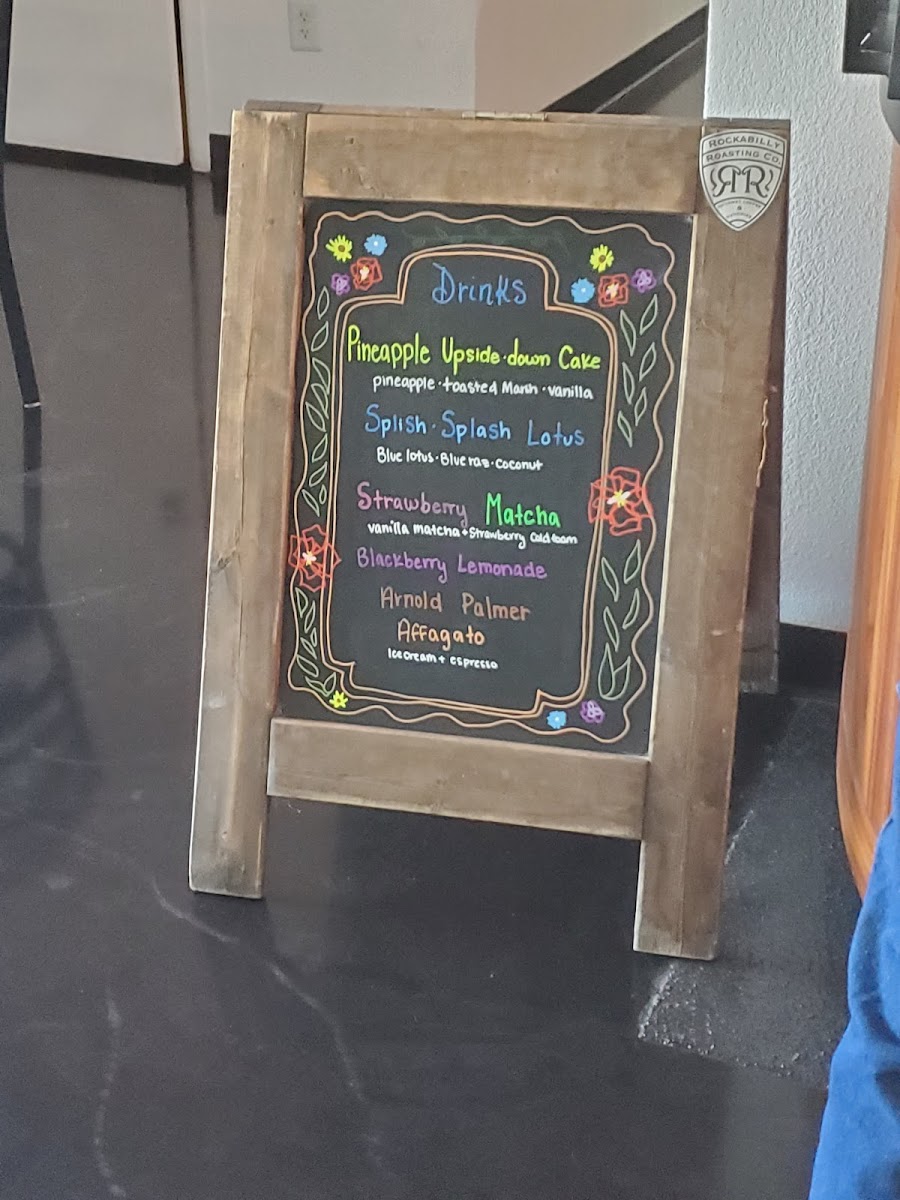 ROCKABILLY
ROASTING CO.
RR
Drinks
Pineapple Upside·down Cake
pineapple·toasted Marsh·vanilla
Splish·Splash Lotus
Blue lotus·Blue raz·coconut
Strawberry Matcha
vanilla matcha+strawberry Cold foam
Blackberry Lemonade
Arnold Palmer
Affagato
Ice cream + espresso